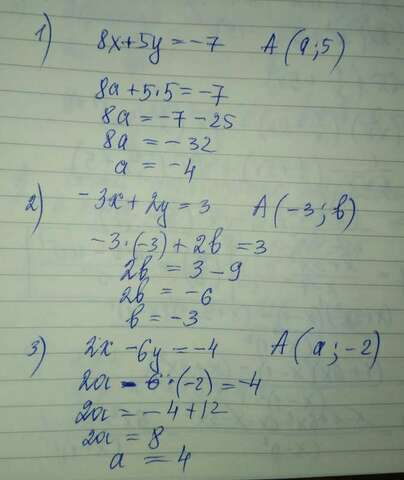 1) 8x+5y=-7 A(a;5)
8a+5·5=-7
8a=-7-25
8a=-32
a=-4
2) -3x+2y=3 A(-3;b)
-3·(-3)+2b=3
2b=3-9
2b=-6
b=-3
3) 2x-6y=-4 A(a;-2)
2a-6·(-2)=-4
2a=-4+12
2a=8
a=4